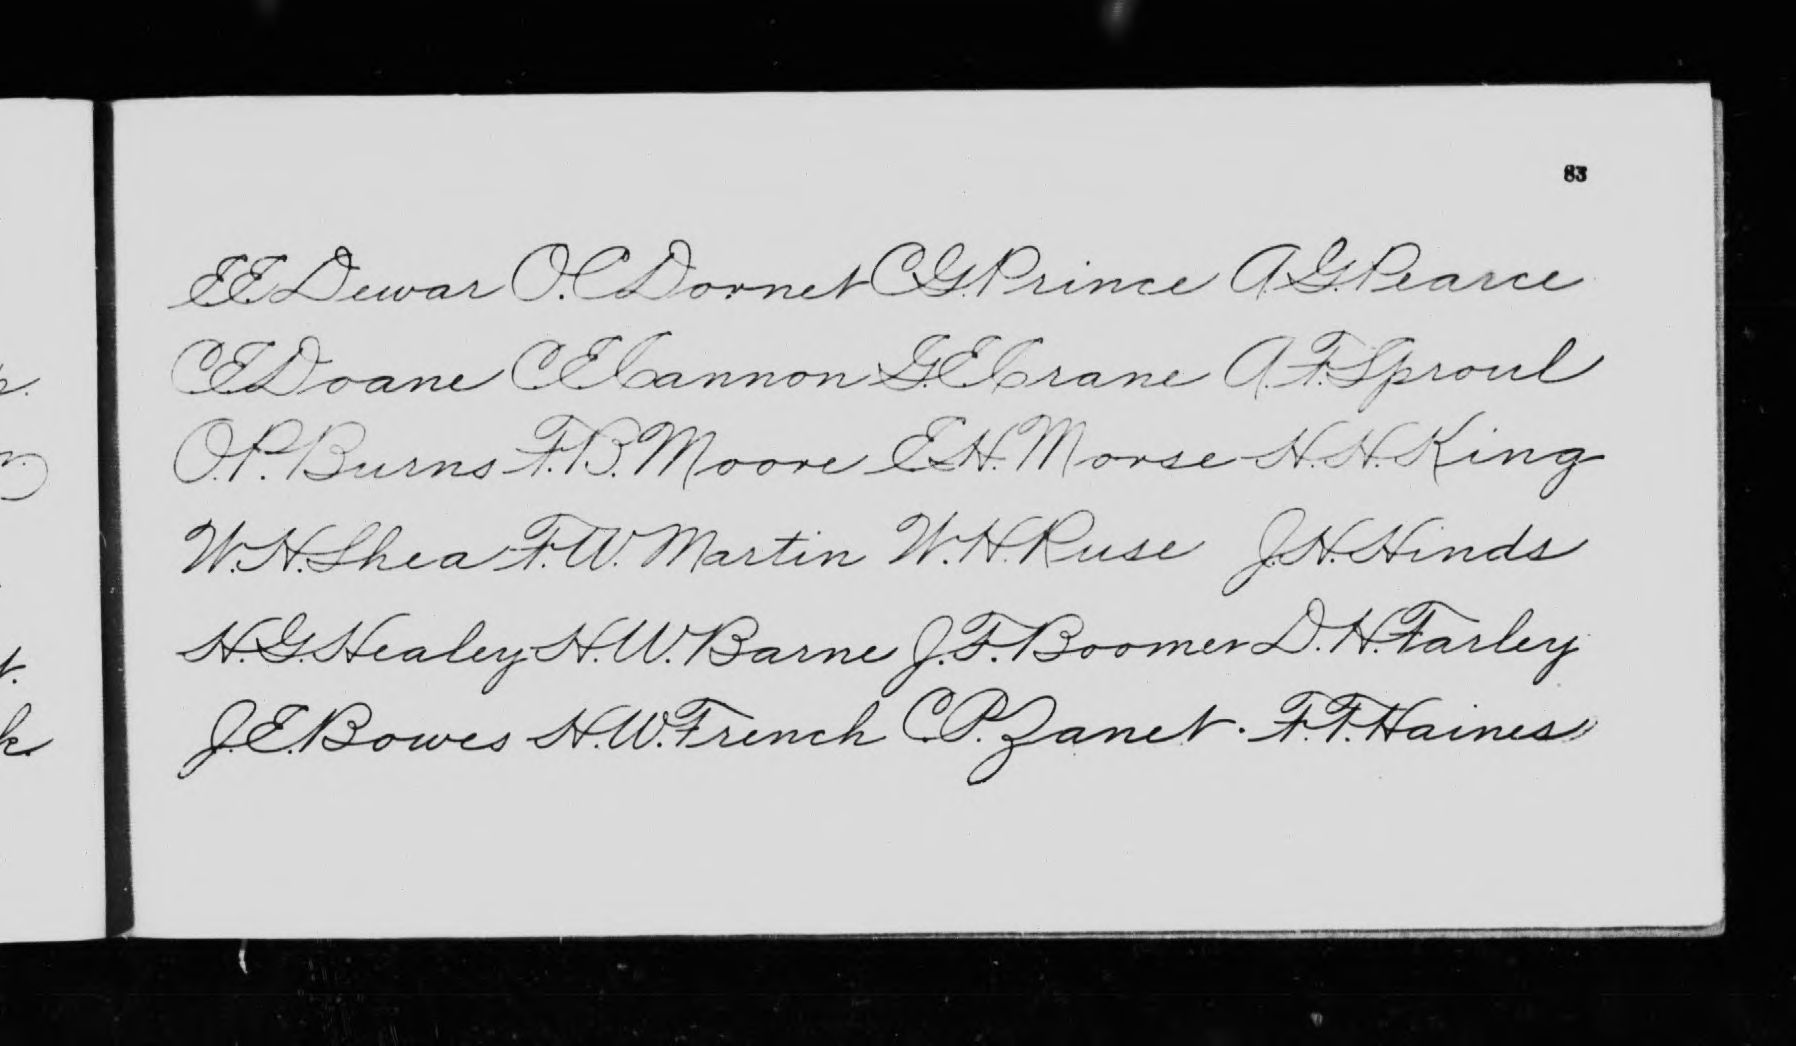 83
E.E. Dewar O.C. Dornet C.G. Prince A.G. Pearce
C.E. Doane C.E. Cannon G.E. Crane A.F. Sproul
O.P. Burns F.B. Moore E.H. Morse H.H. King
W.H. Shea F.W. Martin W.H. Ruse J.H. Hinds
H.G. Healey H.W. Barne J.F. Boomer D.H. Farley
J.E. Bowes H.W. French C.P. Zanet. F.F. Haines